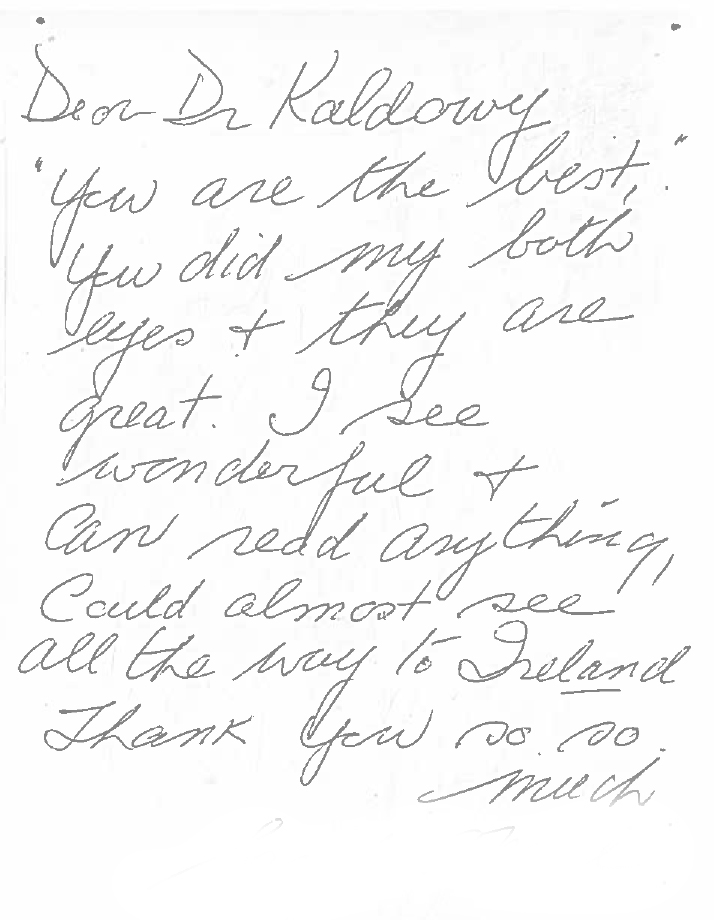 Dear Dr Kaldowy
"You are the best,."
You did my both
eyes + they are
great. I see
wonderful +
Can read anything,
Could almost see
all the way to Ireland
Thank you so so
much